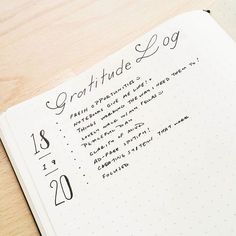 Gratitude Log
18
19
20
FRESH OPPORTUNITIES
NOTEBOOKS GIVE ME LIFE!
THINGS WORKING THE WAY I NEED THEM TO!
LOVELY WALK
PEACEFUL
CLARITY OF MIND
AD-FREE SPOTIFY!
CREATING SYSTEMS THAT WORK
FOCUSED